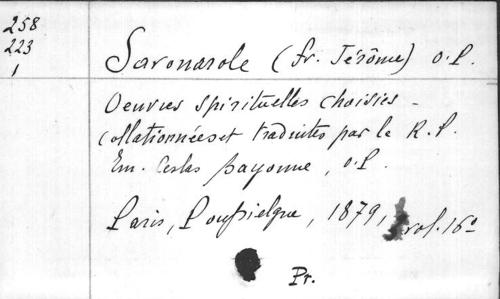 258
223
1
Savonarole (fr. Jérôme) o.P.
Oeuvres spirituelles choisies -
collationnées et traduites par le R.P.
Em. Ceslas Bayonne, o.P.
Paris, Poussielgue, 1879, vol. 16°
Pr.